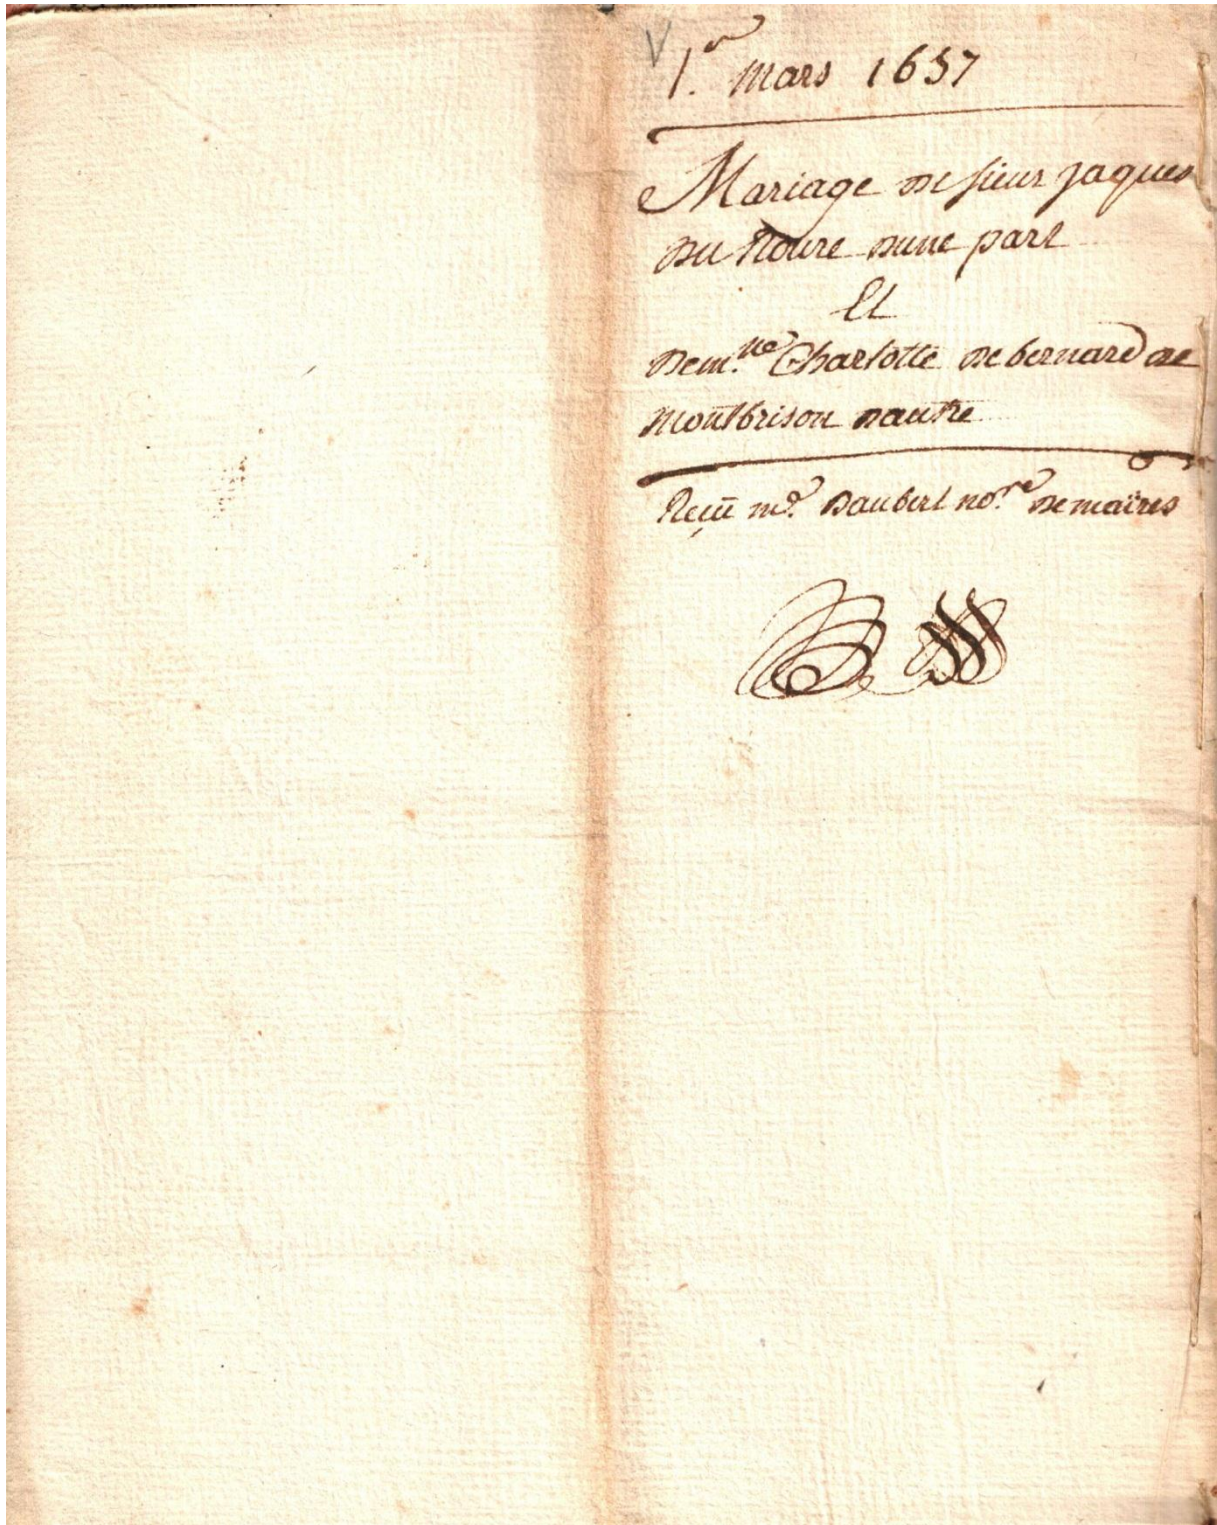 1er. mars 1657
Mariage de sieur Jaques
du Roure dune part
Et
Dem.lle Charlotte de bernard de
Montbrison dautre
Reçu me. Daubert no.re de maïres